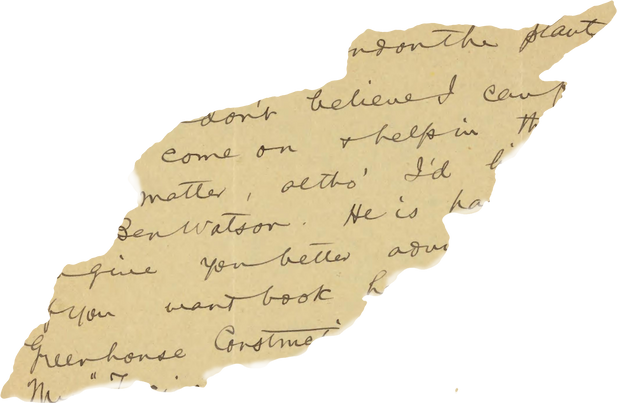 on the plant
don't believe I can
come on & help in th
matter, altho' I'd li
Ben Watson. He is ha
give you better adv
you want book h
Greenhouse Construct